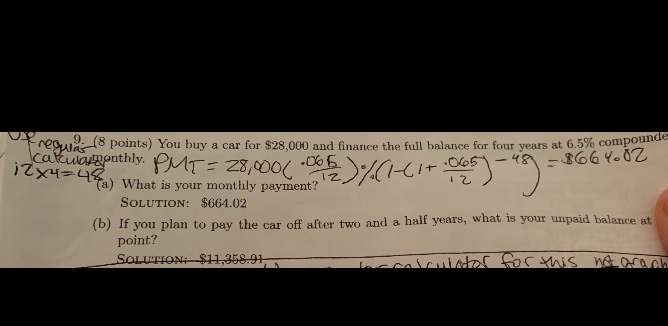 regular 9. (8 points) You buy a car for $28,000 and finance the full balance for four years at 6.5% compounde
calculator monthly. PMT = 28,000(.065/12)÷(1-(1+.065/12)-48) = $664.02
12x4=48
(a) What is your monthly payment?
SOLUTION: $664.02
(b) If you plan to pay the car off after two and a half years, what is your unpaid balance at
point?
SOLUTION: $11,358.91
calculator for this not graph